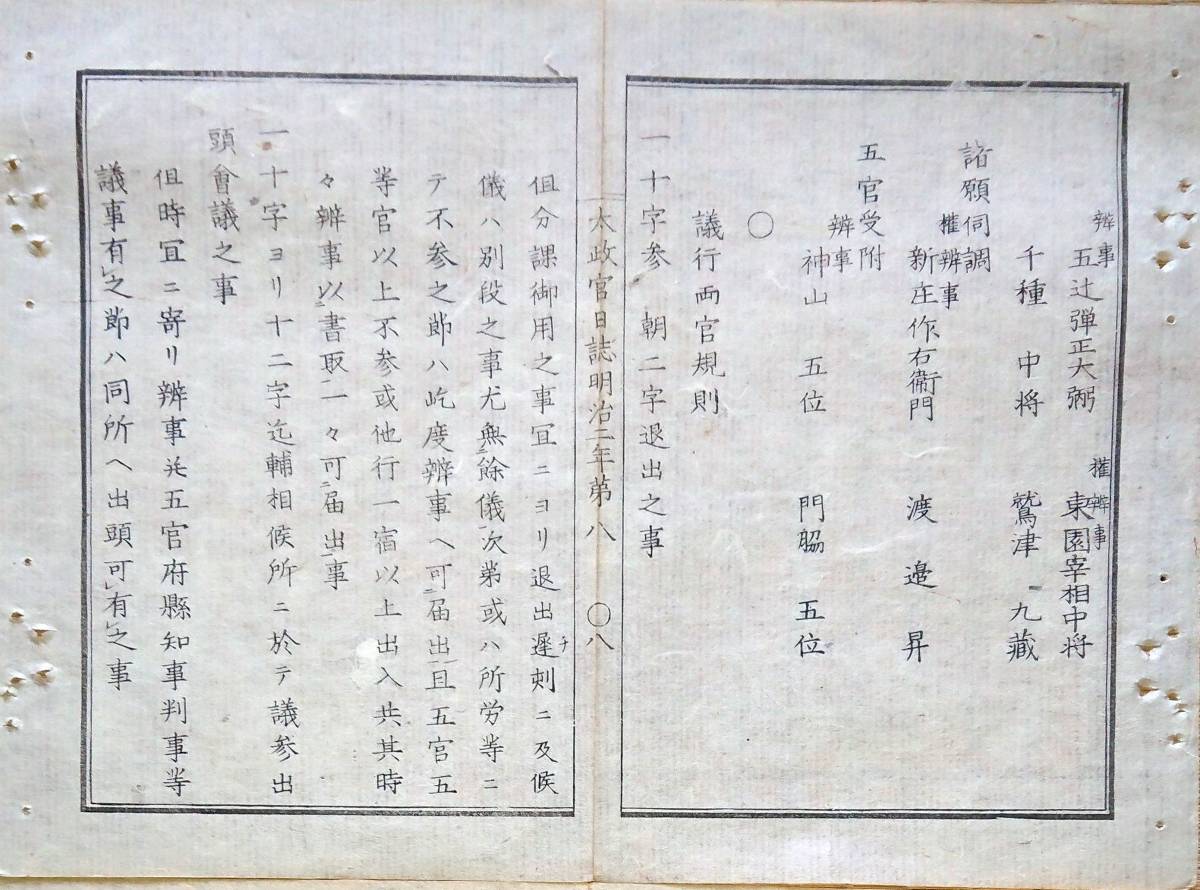 辨事 五辻弾正大弼 権辨事 東園宰相中将
千種中将 鷲津九蔵
諸願伺調
権辨事 新庄作右衛門 渡邉昇
五官受附
辨事 神山五位 門脇五位
〇
議行両官規則
一十字参 朝二字退出之事
太政官日誌明治二年第八 〇八
但分課御用之事冝ニヨリ退出遅刻ニ及候
儀ハ別段之事尤無餘儀次第或ハ所労等ニ
テ不参之節ハ屹度辨事ヘ可届出且五官五
等官以上不参或他行一宿以上出入共其時
々辨事以書取一々可届出事
一十字ヨリ十二字迄輔相候所ニ於テ議参出
頭會議之事
但時冝ニ寄リ辨事并五官府縣知事判事等
議事有之節ハ同所ヘ出頭可有之事